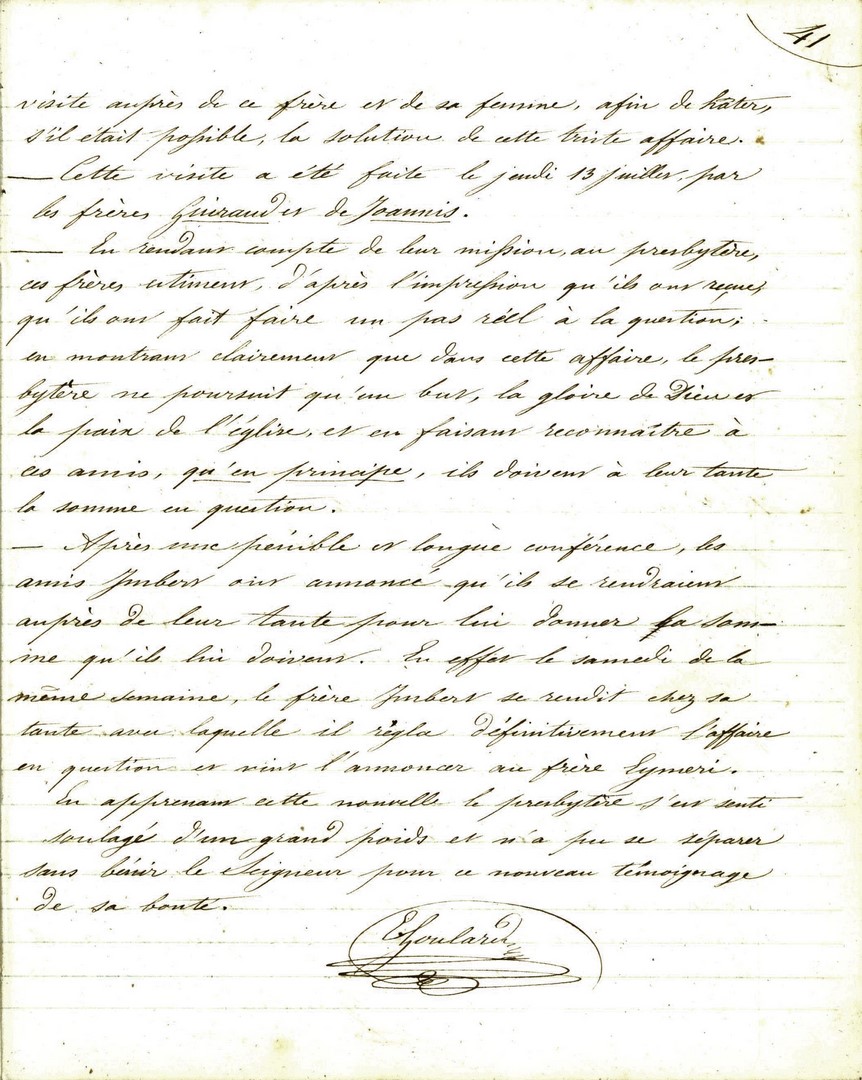 41
visite auprès de ce frère et de sa femme, afin de hâter,
s'il était possible, la solution de cette triste affaire.
— Cette visite a été faite le jeudi 13 juillet, par
les frères Guiraud et de Joannis.
— En rendant compte de leur mission, au presbytère,
ces frères estiment, d'après l'impression qu'ils ont reçue,
qu'ils ont fait faire un pas réel à la question;
en montrant clairement que dans cette affaire, le pres-
bytère ne poursuit qu'un but, la gloire de Dieu et
la paix de l'église, et en faisant reconnaître à
ces amis, qu'en principe, ils doivent à leur tante
la somme en question.
— Après une pénible et longue conférence, les
amis Imbert ont annoncé qu'ils se rendraient
auprès de leur tante pour lui donner la som-
me qu'ils lui doivent. En effet le samedi de la
même semaine, le frère Imbert se rendit chez sa
tante avec laquelle il régla définitivement l'affaire
en question et vint l'annoncer au frère Eymeri.
En apprenant cette nouvelle le presbytère s'est senti
soulagé d'un grand poids et n'a pu se séparer
sans bénir le Seigneur pour ce nouveau témoignage
de sa bonté.
E Goulard